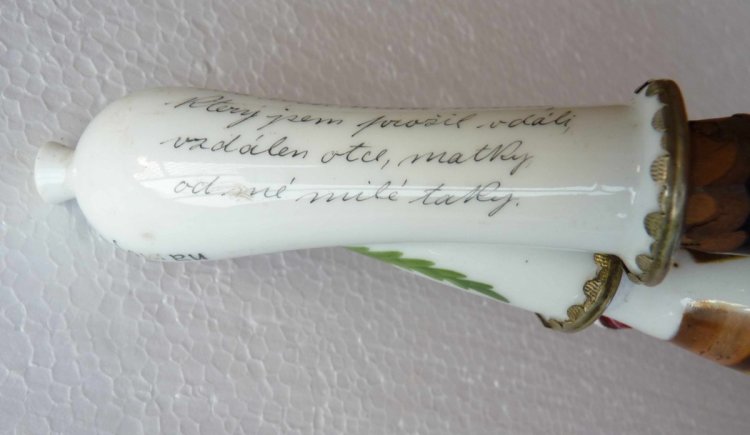 Který jsem prožil vdáli,
vzdálen otce, matky
od mé milé taky.